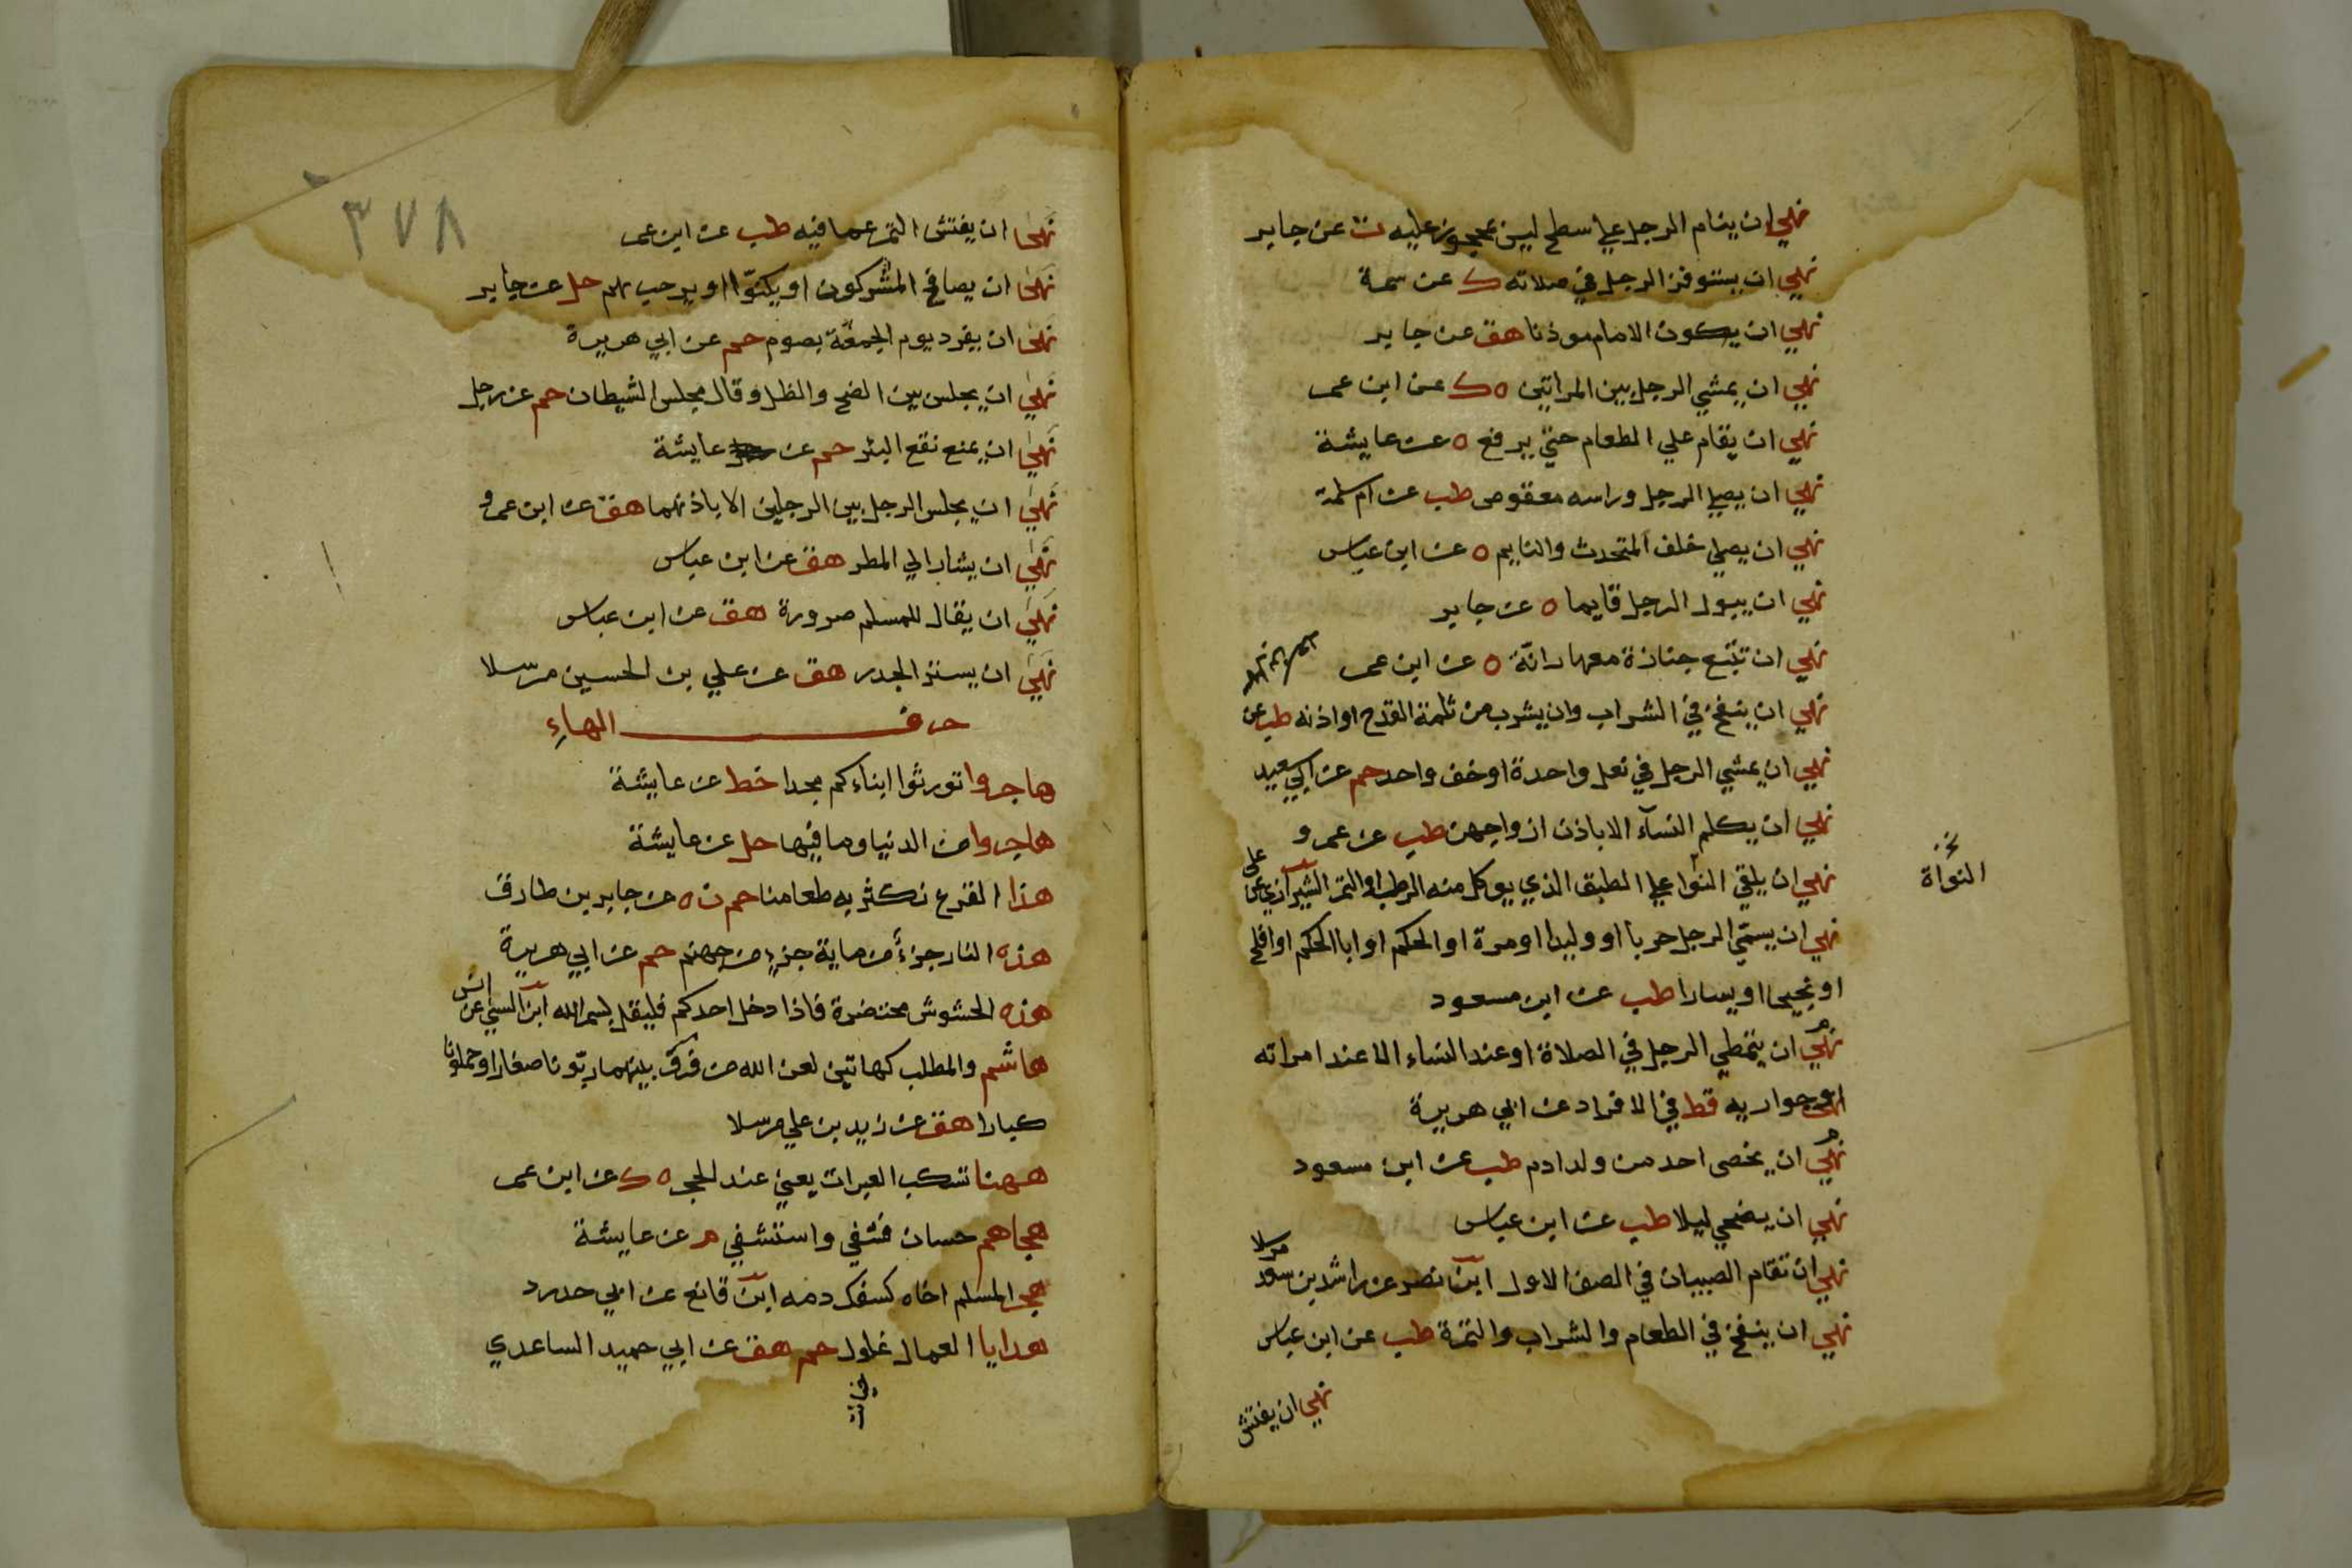 نهي ان ينام الرجل علي سطح ليس بمحجوز عليه ت عن جابر
نهي ان يستوفز الرجل في صلاته ك عن سمرة
نهي ان يكون الامام موذنا هق عن جابر
نهي ان يمشي الرجل بين المراتين ه ك عن ابن عمر
نهي ان يقام علي الطعام حتي يرفع ه عن عايشة
نهي ان يصلي الرجل وراسه معقوص طب عن ام سلمة
نهي ان يصلي خلف المتحدث والنايم ه عن ابن عباس
نهي ان يبول الرجل قايما ه عن جابر
نهي ان تتبع جنازة معها رانة ه عن ابن عمر
نهي ان ينفخ في الشراب وان يشرب من ثلمة القدح او اذنه طب عن
نهي ان يمشي الرجل في نعل واحدة او خف واحد حم عن ابي سعيد
نهي ان يكلم النسآء الا باذن ازواجهن طب عن عمرو
نهي ان يلقي النوا علي الطبق الذي يوكل منه الرطب او التمر الشيرازي عن علي
نخ النواة
نهي ان يسمّي الرجل حربا او وليدا او مرة او الحكم او ابا الحكم او افلح
او نجيحا او يسارا طب عن ابن مسعود
نهي ان يتمطي الرجل في الصلاة او عند النساء الا عند امراته
او جواريه قط في الافراد عن ابي هريرة
نهي ان يخصى احد من ولد ادم طب عن ابن مسعود
نهي ان يضحي ليلا طب عن ابن عباس
نهي ان تقام الصبيان في الصف الاول ابن نصر عن راشد بن سعد مرسلا
نهي ان ينفخ في الطعام والشراب والثمرة طب عن ابن عباس
نهي ان يفتش
٣٧٨
نهى ان يفتش التمر عما فيه طب عن ابن عمر
نهى ان يصافح المشركون او يكنّوا او يرحب بهم حل عن جابر
نهى ان يفرد يوم الجمعة بصوم حم عن ابي هريرة
نهي ان يجلس بين الضح والظل وقال مجلس الشيطان حم عن رجل
نهي ان يمنع نقع البئر حم عن عايشة
نهي ان يجلس الرجل بين الرجلين الا باذنهما هق عن ابن عمرو
نهي ان يشار الي المطر هق عن ابن عباس
نهي ان يقال للمسلم صرورة هق عن ابن عباس
نهي ان يستر الجدر هق عن علي بن الحسين مرسلا
حرف الهاءِ
هاجروا تورثوا ابناءكم مجدا خط عن عايشة
هاجروا من الدنيا وما فيها حل عن عايشة
هذا القرع نكثر به طعامنا حم ن ه عن جابر بن طارق
هذه النار جزءٌ من ماية جزءٍ من جهنم حم عن ابي هريرة
هذه الحشوش محتضرة فاذا دخل احدكم فليقل بسم الله ابن السني عن انس
هاشم والمطلب كهاتين لعن الله من فرّق بينهما ربّونا صغارا وحملونا
كبارا هق عن زيد بن علي مرسلا
ههنا تسكب العبرات يعني عند الحجر ه ك عن ابن عمر
هجاهم حسان فشفي واستشفي م عن عايشة
هجر المسلم اخاه كسفك دمه ابن قانع عن ابي حدرد
هدايا العمال غلول حم هق عن ابي حميد الساعدي